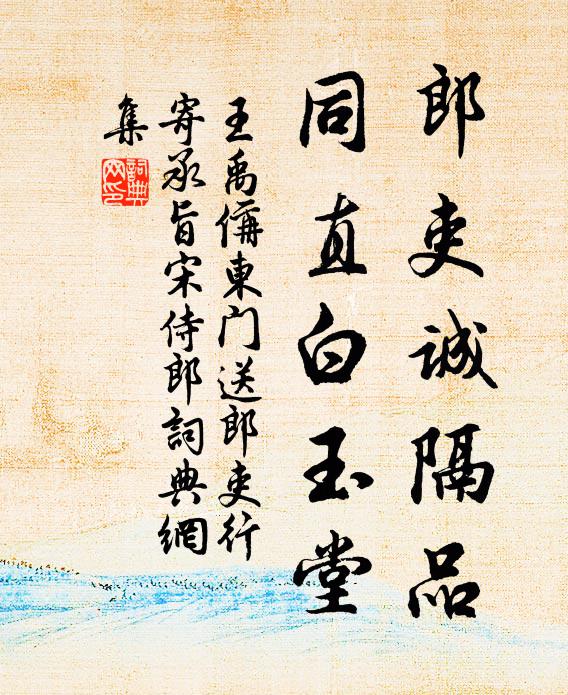 郎吏诚隔品
同直白玉堂
王禹偁東门送郎吏行
寄承旨宋侍郎詞典網
集
詞典網印